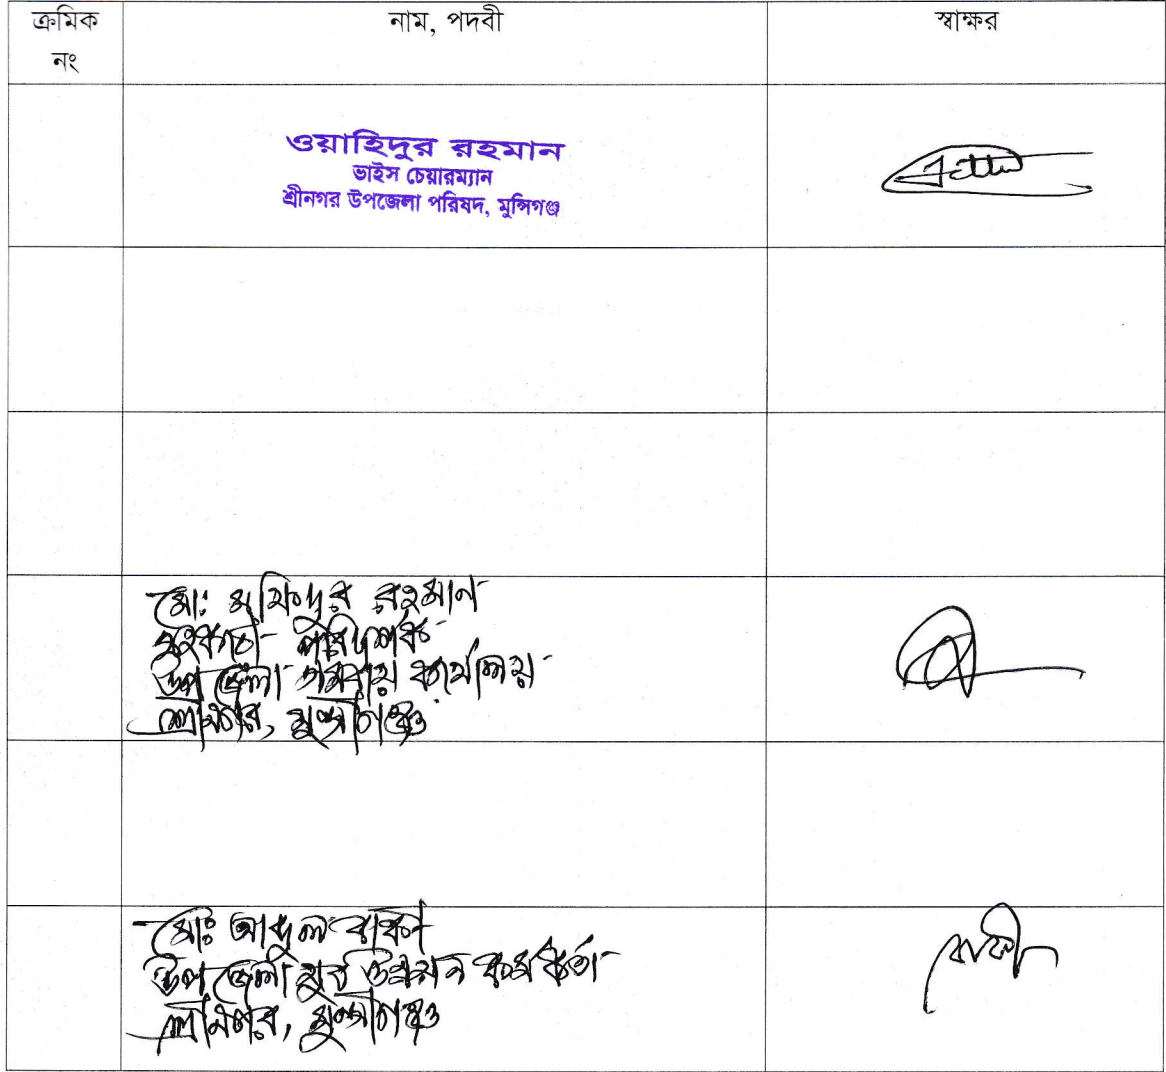 ক্রমিক নং নাম, পদবী স্বাক্ষর
ওয়াহিদুর রহমান
ভাইস চেয়ারম্যান
শ্রীনগর উপজেলা পরিষদ, মুন্সিগঞ্জ
মোঃ মফিদুর রহমান
সহকারী পরিদর্শক
উপজেলা সমবায় কার্যালয়
শ্রীনগর, মুন্সীগঞ্জ
মোঃ আব্দুল বাকী
উপজেলা যুব উন্নয়ন কর্মকর্তা
শ্রীনগর, মুন্সীগঞ্জ
বাকী